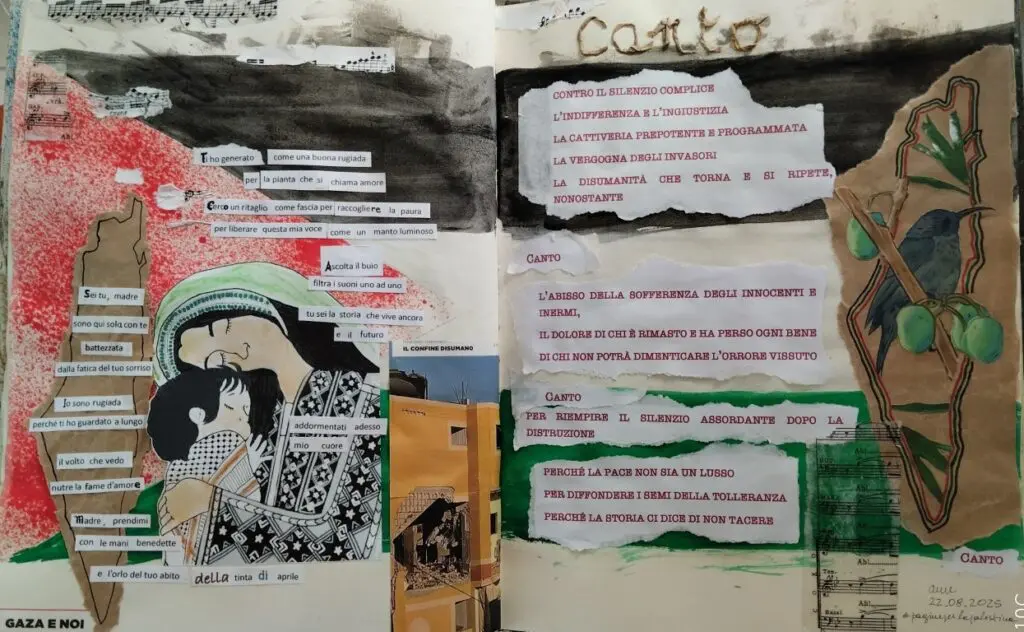 Ti ho generato come una buona rugiada
per la pianta che si chiama amore
Cerco un ritaglio come fascia per raccogliere la paura
per liberare questa mia voce come un manto luminoso
Ascolta il buio
filtra i suoni uno ad uno
tu sei la storia che vive ancora
e il futuro
Sei tu, madre
sono qui sola con te
battezzata
dalla fatica del tuo sorriso
Io sono rugiada
perché ti ho guardato a lungo
il volto che vedo
nutre la fame d'amore
Madre, prendimi
con le mani benedette
e l'orlo del tuo abito della tinta di aprile
addormentati adesso
mio cuore
IL CONFINE DISUMANO
GAZA E NOI
Canto
CONTRO IL SILENZIO COMPLICE
L'INDIFFERENZA E L'INGIUSTIZIA
LA CATTIVERIA PREPOTENTE E PROGRAMMATA
LA VERGOGNA DEGLI INVASORI
LA DISUMANITÀ CHE TORNA E SI RIPETE,
NONOSTANTE
CANTO
L'ABISSO DELLA SOFFERENZA DEGLI INNOCENTI E
INERMI,
IL DOLORE DI CHI È RIMASTO E HA PERSO OGNI BENE
DI CHI NON POTRÀ DIMENTICARE L'ORRORE VISSUTO
CANTO
PER RIEMPIRE IL SILENZIO ASSORDANTE DOPO LA
DISTRUZIONE
PERCHÉ LA PACE NON SIA UN LUSSO
PER DIFFONDERE I SEMI DELLA TOLLERANZA
PERCHÉ LA STORIA CI DICE DI NON TACERE
CANTO
22.08.2025
#paginexlapalestina